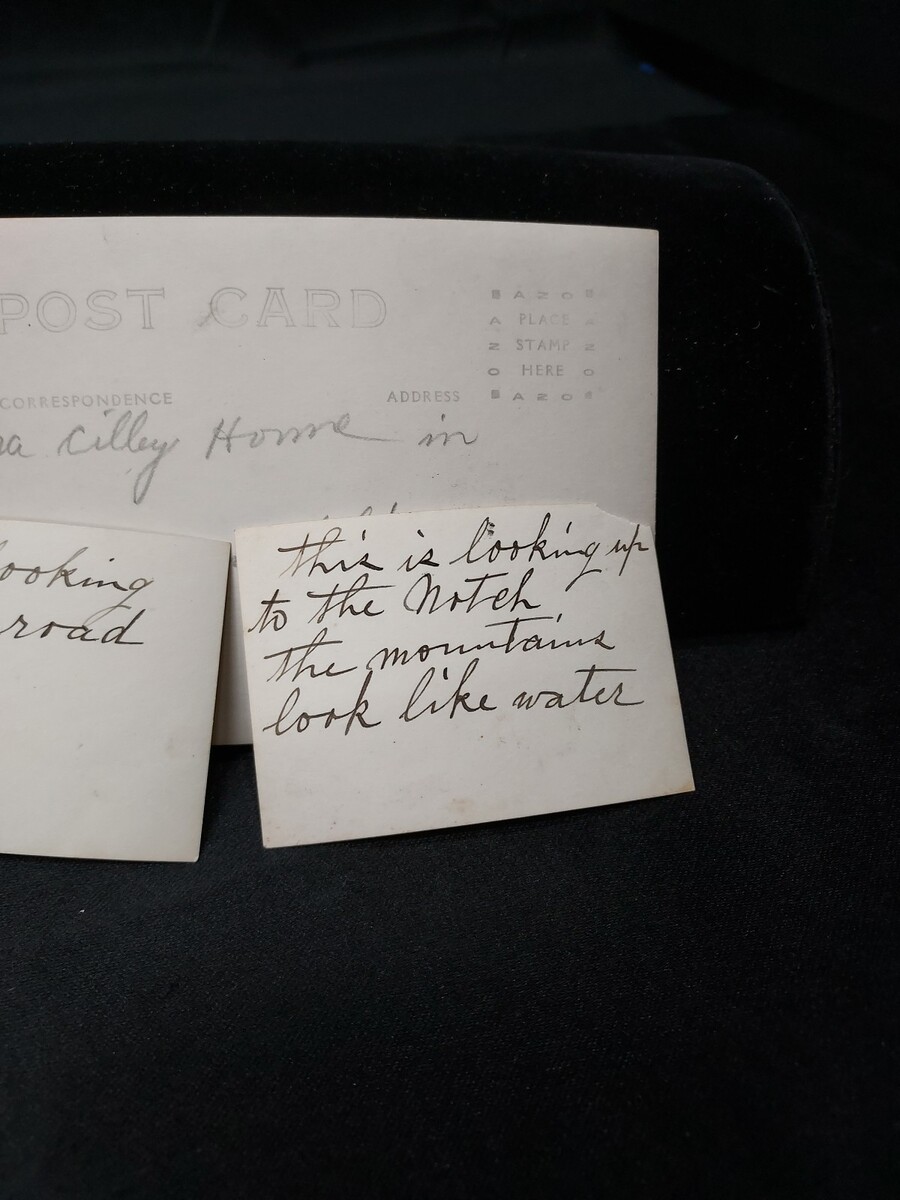 POST CARD
AZO
A PLACE A
Z STAMP Z
O HERE O
AZO
CORRESPONDENCE ADDRESS
Cilley Home in
ooking
road
this is looking up
to the Notch
the mountains
look like water